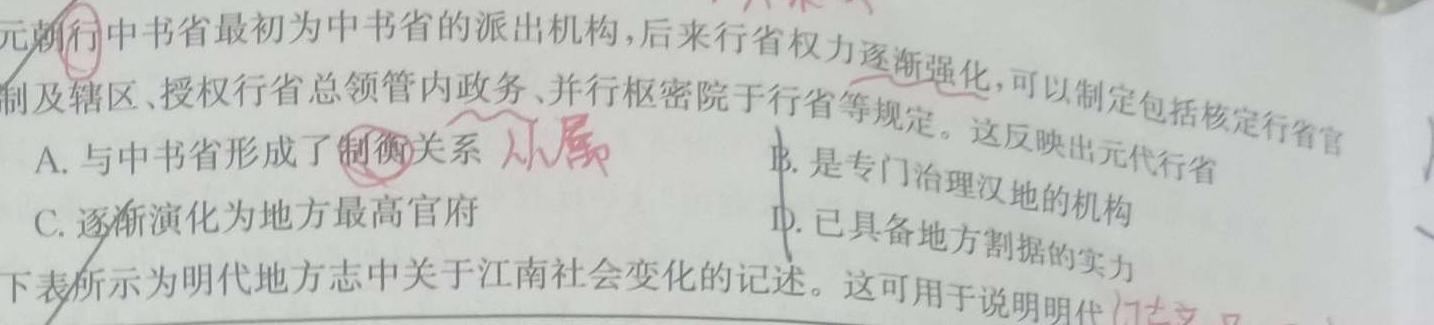 元朝行中书省最初为中书省的派出机构,后来行省权力逐渐强化,可以制定包括核定行省官
制及辖区、授权行省总领管内政务、并行枢密院于行省等规定。这反映出元代行省
A. 与中书省形成了制衡关系 从属
B. 是专门治理汉地的机构
C. 逐渐演化为地方最高官府
D. 已具备地方割据的实力
下表所示为明代地方志中关于江南社会变化的记述。这可用于说明明代